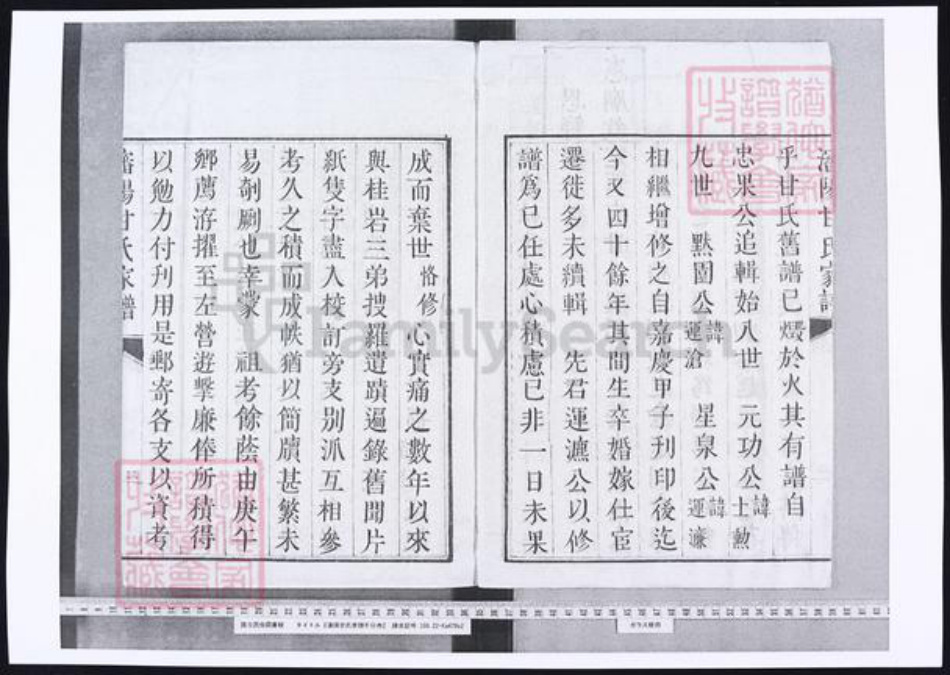 瀋陽甘氏家譜
乎甘氏舊譜已燬於火其有譜自
忠果公追輯始八世 元功公諱士勲
九世 默園公諱運滄 星泉公諱運濂
相繼增修之自嘉慶甲子刊印後迄
今又四十餘年其間生卒婚嫁仕宦
遷徙多未續輯 先君運瀌公以修
譜爲己任處心積慮已非一日未果
成而棄世恪修心實痛之數年以來
與桂岩三弟搜羅遺蹟遍錄舊聞片
紙隻字盡入校訂旁支別派互相參
考久之積而成帙猶以簡牘甚繁未
易剞劂也幸蒙 祖考餘蔭由庚午
鄉薦洊擢至左營遊擊廉俸所積得
以勉力付刋用是郵寄各支以資考
瀋陽甘氏家譜
FamilySearch